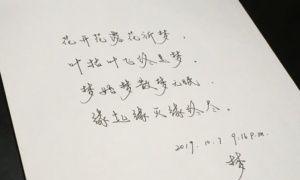 花开花落花祈梦.
叶枯叶飞终是梦.
梦始梦散梦无眠.
缘起缘灭缘终尽.
2019. 10. 7 9:16 p.m.
梦